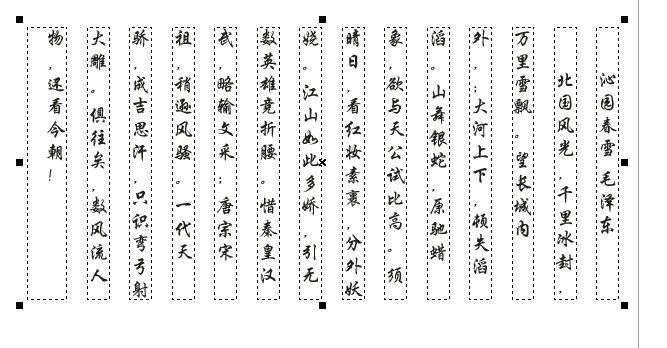 沁园春雪 毛泽东
北国风光,千里冰封,
万里雪飘。望长城内
外,;大河上下,顿失滔
滔。山舞银蛇,原驰蜡
象,欲与天公试比高。须
晴日 看红妆素裹 分外妖
娆。江山如此多娇 引无
数英雄竞折腰 惜秦皇汉
武,略输文采;唐宗宋
祖,稍逊风骚。一代天
骄,成吉思汗,只识弯弓射
大雕。俱往矣 数风流人
物,还看今朝!